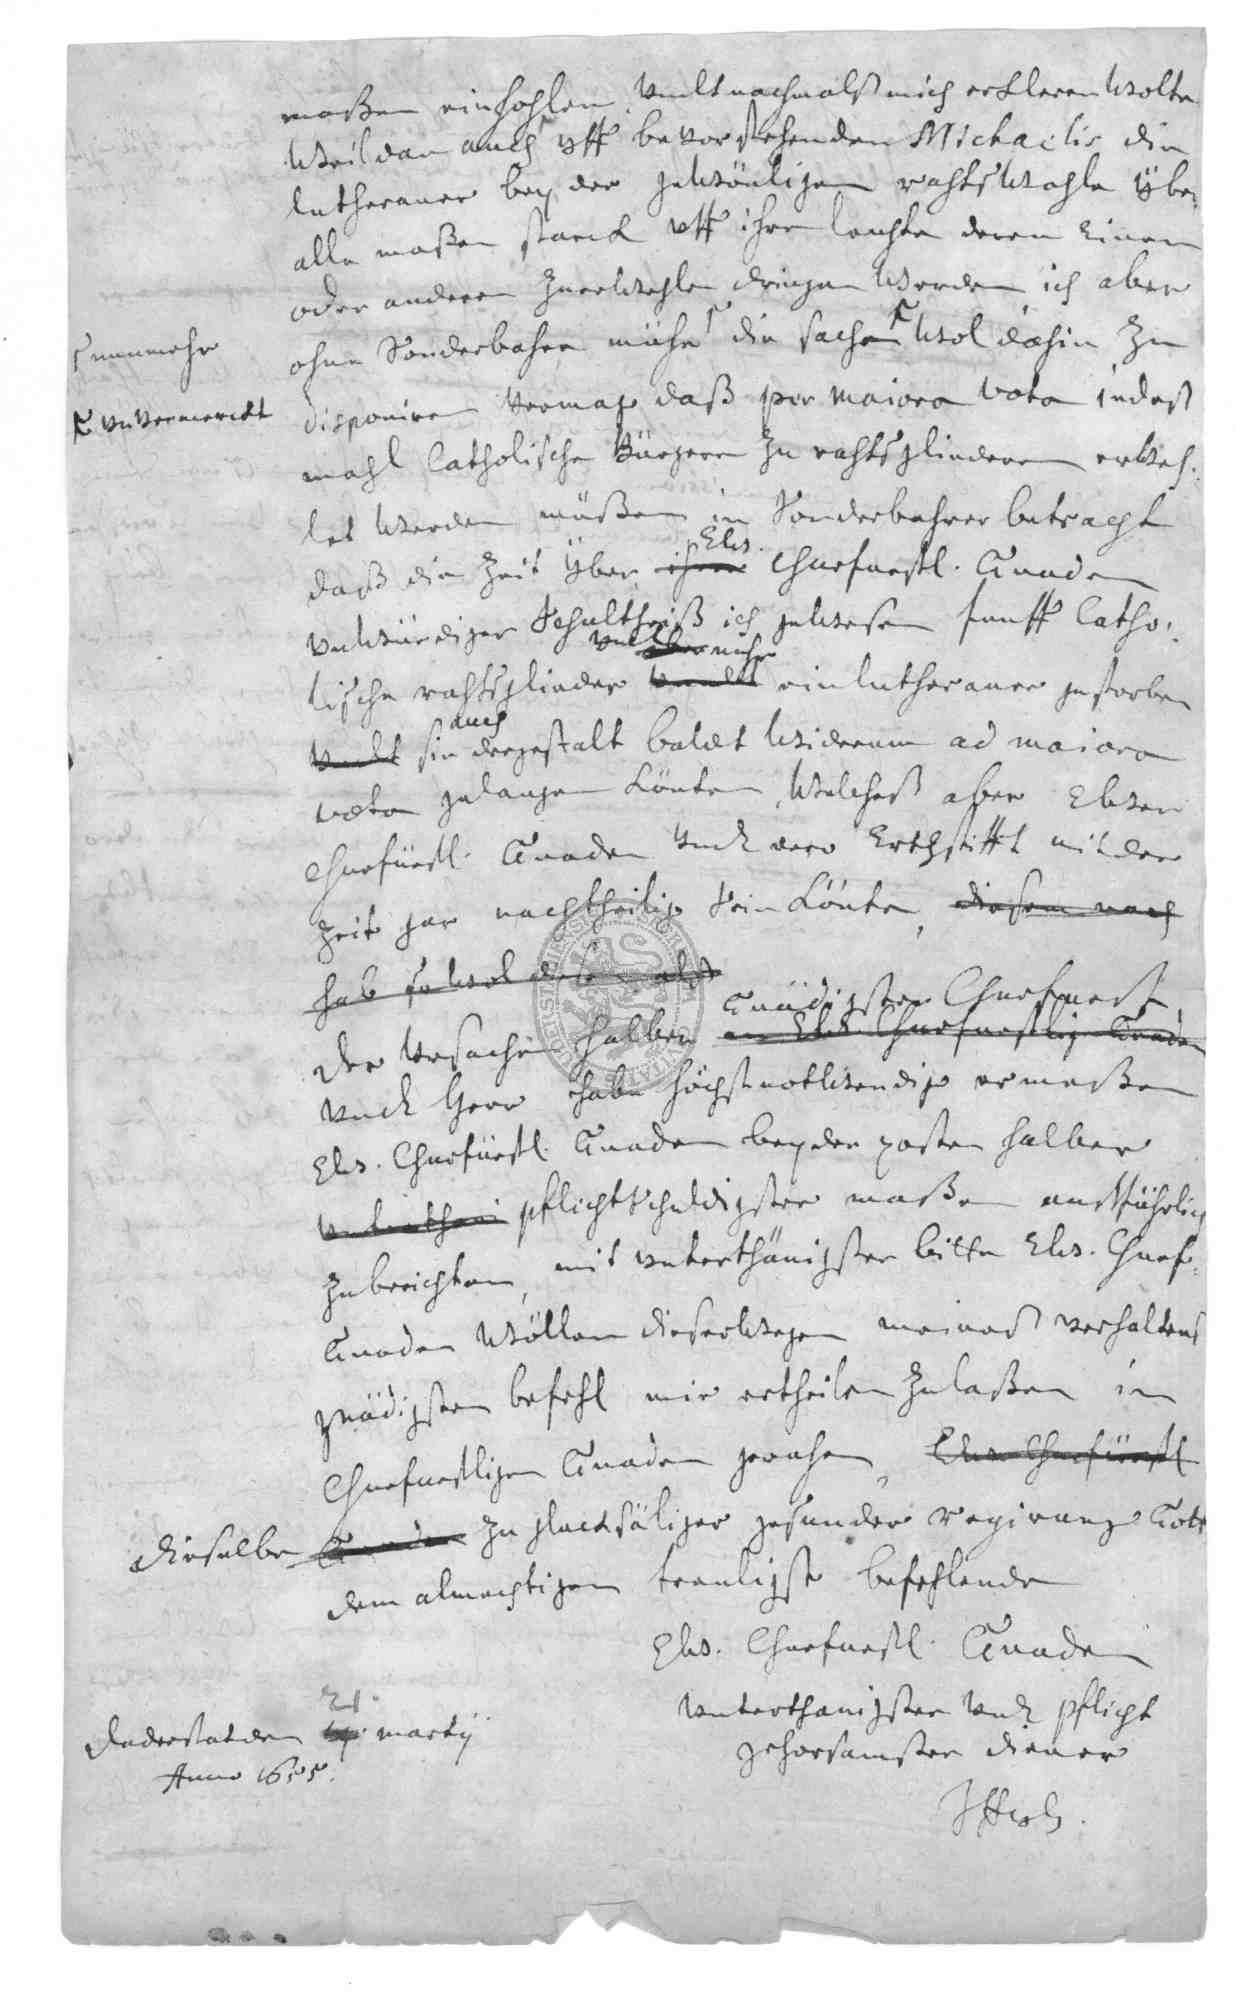 maßen einhohlen, vndt nachmalß mich erkleren wolte
Weil dan auch vff bevorstehenden Michaelis die
lutheraner bey der gewönligen rahtswahle über
alle maßen starck vff ihre leuthe deren einen
oder anderen zuerwehlen dringen werden, ich aber
ohne Sonderbahre mühe die sache wol dahin zu
nunmehr
vnvermerckt
disponiren vermag daß per maiora vota iedeß
mahl Catholische Bürgere zu rahtsgliederen erweh-
let werden müßen in Sonderbahrer betracht
daß die zeit über ihrer Ew. Churfurstl. Gnaden
vnwürdiger Schultheiß ich gewesen funff Catho-
lische rahtsglieder vndt aber nuhr ein lutheraner gestorben
vndt sie auch dergestalt baldt widerumb ad maiora
vota gelangen könten, welcheß aber Ewer
Churfürstl. Gnaden vndt dero Ertzstifft mit der
zeit gar nachtheilig sein könte, diesem nach
hab so wol
der vrsachen halben Gnädigster Churfurst
an Ew. Churfurstlig Gnaden
vndt Herr habe höchstnothwendig ermeßen
Ew. Churfürstl. Gnaden beyder posten halber
pflichtschuldigster maßen außführlich
zuberichten, mit vnterthänigster bitte Ew. Churf.
Gnaden wöllen dieserwegen meineß verhaltens
gnädigsten befehl mir ertheilen zulaßen in
Churfurstligen Gnaden geruhen, Ew. Churfürstl
dieselbe Gnaden zu glucksäliger gesunder regirung Gott
dem almechtigen treuligst befehlende
Ew. Churfurstl. Gnaden
vnterthanigster vndt pflicht
gehorsamster diener
Duderstat den 21 martij
Anno 1655.